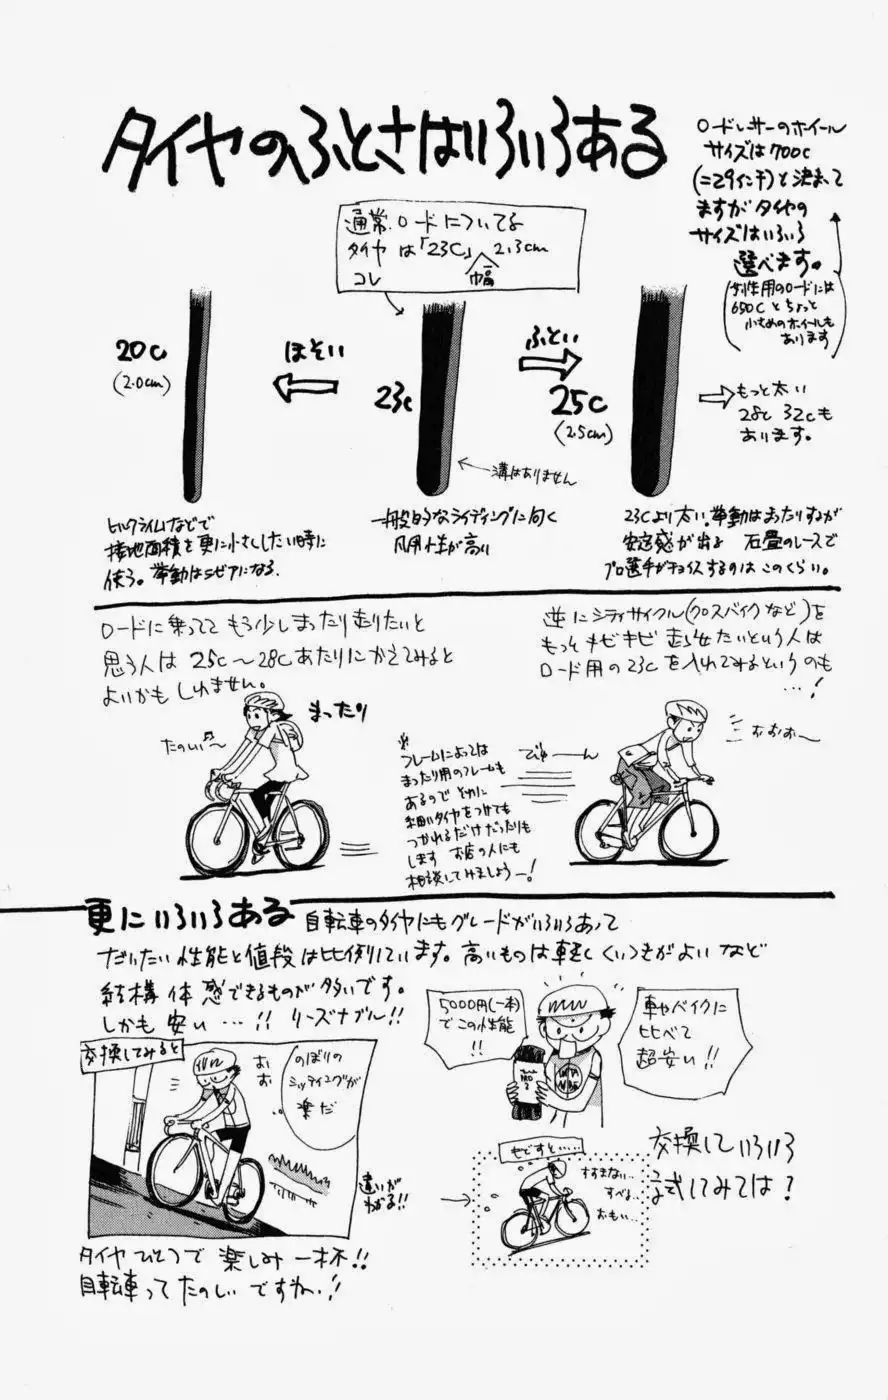 タイヤのふとさはいろいろある
ロードレーサーのホイール
サイズは700c
(=29インチ)と決まって
ますがタイヤの
サイズはいろいろ
選べます。
(女性用のロードには
650Cとちょっと
小さめのホイールも
あります)
通常ロードについてる
タイヤは「23C」 2.3cm
コレ 幅
20c
(2.0cm)
ほそい
23c
ふとい
25c
(2.5cm)
もっと太い
28c 32cも
あります。
溝はありません
ヒルクライムなどで
接地面積を更に小さくしたい時に
使う。挙動はシビアになる。
一般的なライディングに向く
汎用性が高い
23Cより太い。挙動はまったりするが
安定感が出る 石畳のレースで
プロ選手がチョイスするのはこのくらい。
ロードに乗ってて もう少しまったり走りたいと
思う人は 25c〜28cあたりにかえてみると
よいかもしれません。
逆にシティサイクル(クロスバイクなど)を
もっとキビキビ走らせたいという人は
ロード用の23cを入れてみるというのも
…!
まったり
たのしい♬〜
※
フレームによっては
まったり用のフレームも
あるので それに
細いタイヤをつけても
つかれるだけだったりも
します お店の人にも
相談してみましょう—!
びゅーん
おおお〜
更にいろいろある 自転車のタイヤにもグレードがいろいろあって
だいたい性能と値段は比例しています。高いものは軽くくいつきがよいなど
結構体感できるものが多いです。
しかも安い…!! リーズナブル!!
5000円(一本)
でこの性能
!!
車やバイクに
比べて
超安い!!
交換してみると
おお
のぼりの
シッティングが
楽だ
違いが
わかる!!
もどすと……
すすまない…
すべる…
おもい…
交換していろいろ
試してみては?
タイヤひとつで楽しみ一杯!!
自転車ってたのしいですね!!